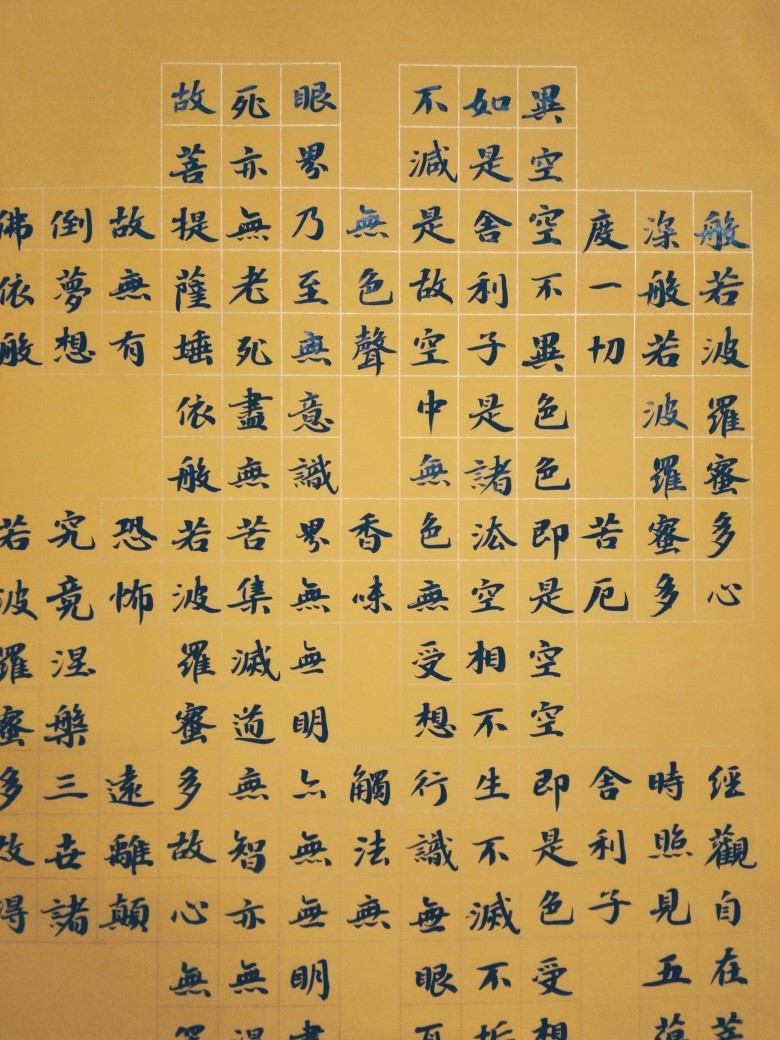 般若波羅蜜多心經觀自在菩
深般若波羅蜜多時照見五蘊
度一切苦厄舍利子
異空空不異色色即是空空即是色受想
如是舍利子是諸法空相不生不滅不垢
不減是故空中無色無受想行識無眼耳
無色聲香味觸法無
眼界乃至無意識界無無明亦無無明盡
死亦無老死盡無苦集滅道無智亦無得
故菩提薩埵依般若波羅蜜多故心無罣
故無有恐怖遠離顛
倒夢想究竟涅槃三世諸
佛依般若波羅蜜多故得